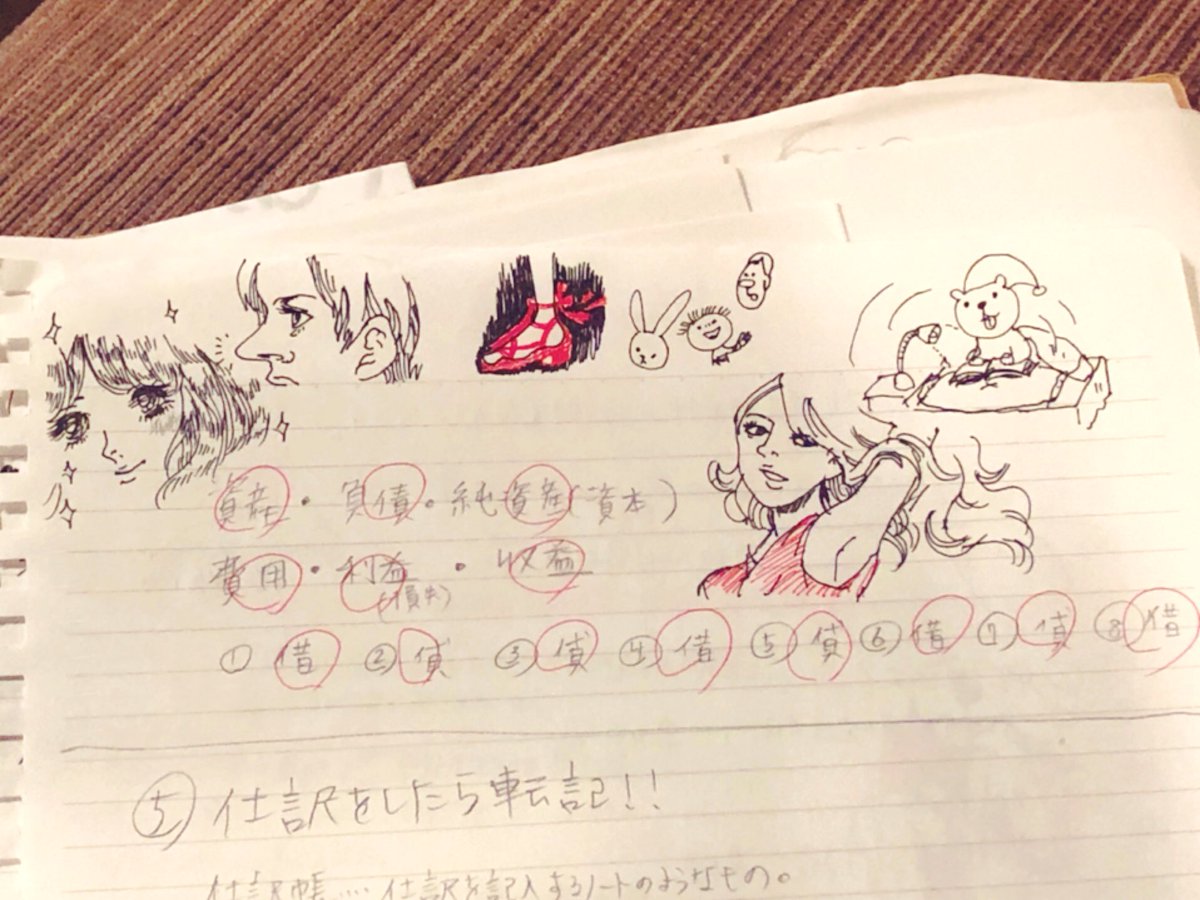 資産・負債・純資産(資本)
費用・利益・収益
(損失)
① 借 ② 貸 ③ 貸 ④ 借 ⑤ 貸 ⑥ 借 ⑦ 貸 ⑧ 借
⑤ 仕訳をしたら転記!!
仕訳帳…… 仕訳を記入するノートのようなもの。